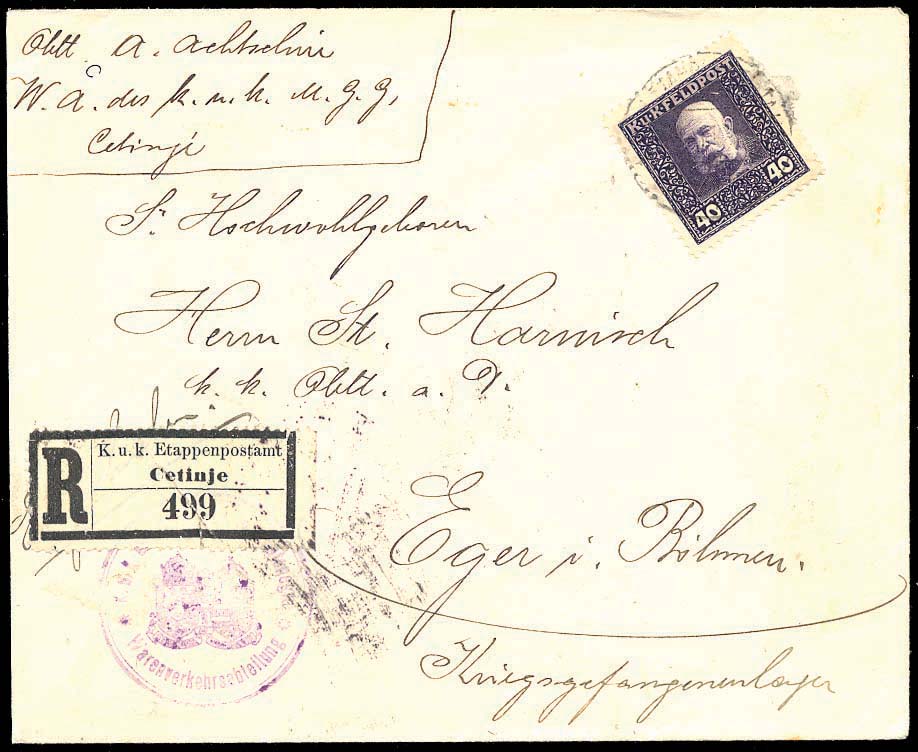 Oblt. A. Achtschin
W. A. des k. u. k. M. G. G.,
Cetinje
K.U.K. FELDPOST
40 40
Sr. Hochwohlgeboren
Herrn St. Harnisch
k. k. Oblt. a. D.
K. u. k. Etappenpostamt
R Cetinje
499
Eger i. Böhmen.
Warenverkehrsabteilung
Kriegsgefangenenlager